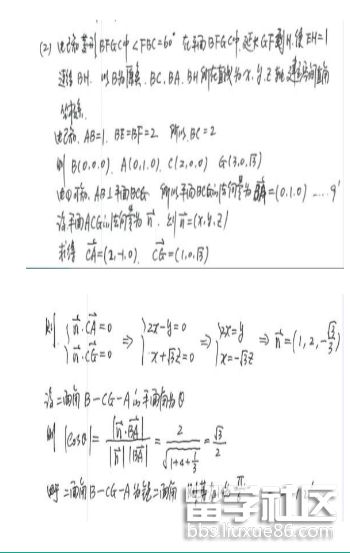 (2) 由已知菱形BFGC中 ∠FBC=60° 在平面BFGC中,延长GF到H,使FH=1
连结BH. 以B为原点, BC, BA, BH所在直线为x, y, z轴,建立空间直角
坐标系,
由已知, AB=1, BE=BF=2 所以BC=2
则 B(0,0,0), A(0,1,0), C(2,0,0) G(3,0,√3)
由(1)可知, AB⊥平面BCG 所以平面BCG的法向量为 BA=(0,1,0) ……9'
设平面ACG的法向量为 n, 则 n=(x,y,z)
求得 CA=(2,-1,0), CG=(1,0,√3)
则 { n·CA=0 n·CG=0 ⇒ { 2x-y=0 x+√3z=0 ⇒ { 2x=y x=-√3z ⇒ n=(1,2,-√3/3)
设二面角B-CG-A的平面角为θ
则 |cosθ|= |n·BA| / |n||BA| = 2/√(1+4+1/3) = √3/2
二面角B-CG-A为锐二面角 π
学习社区
bbs.liuxue86.com